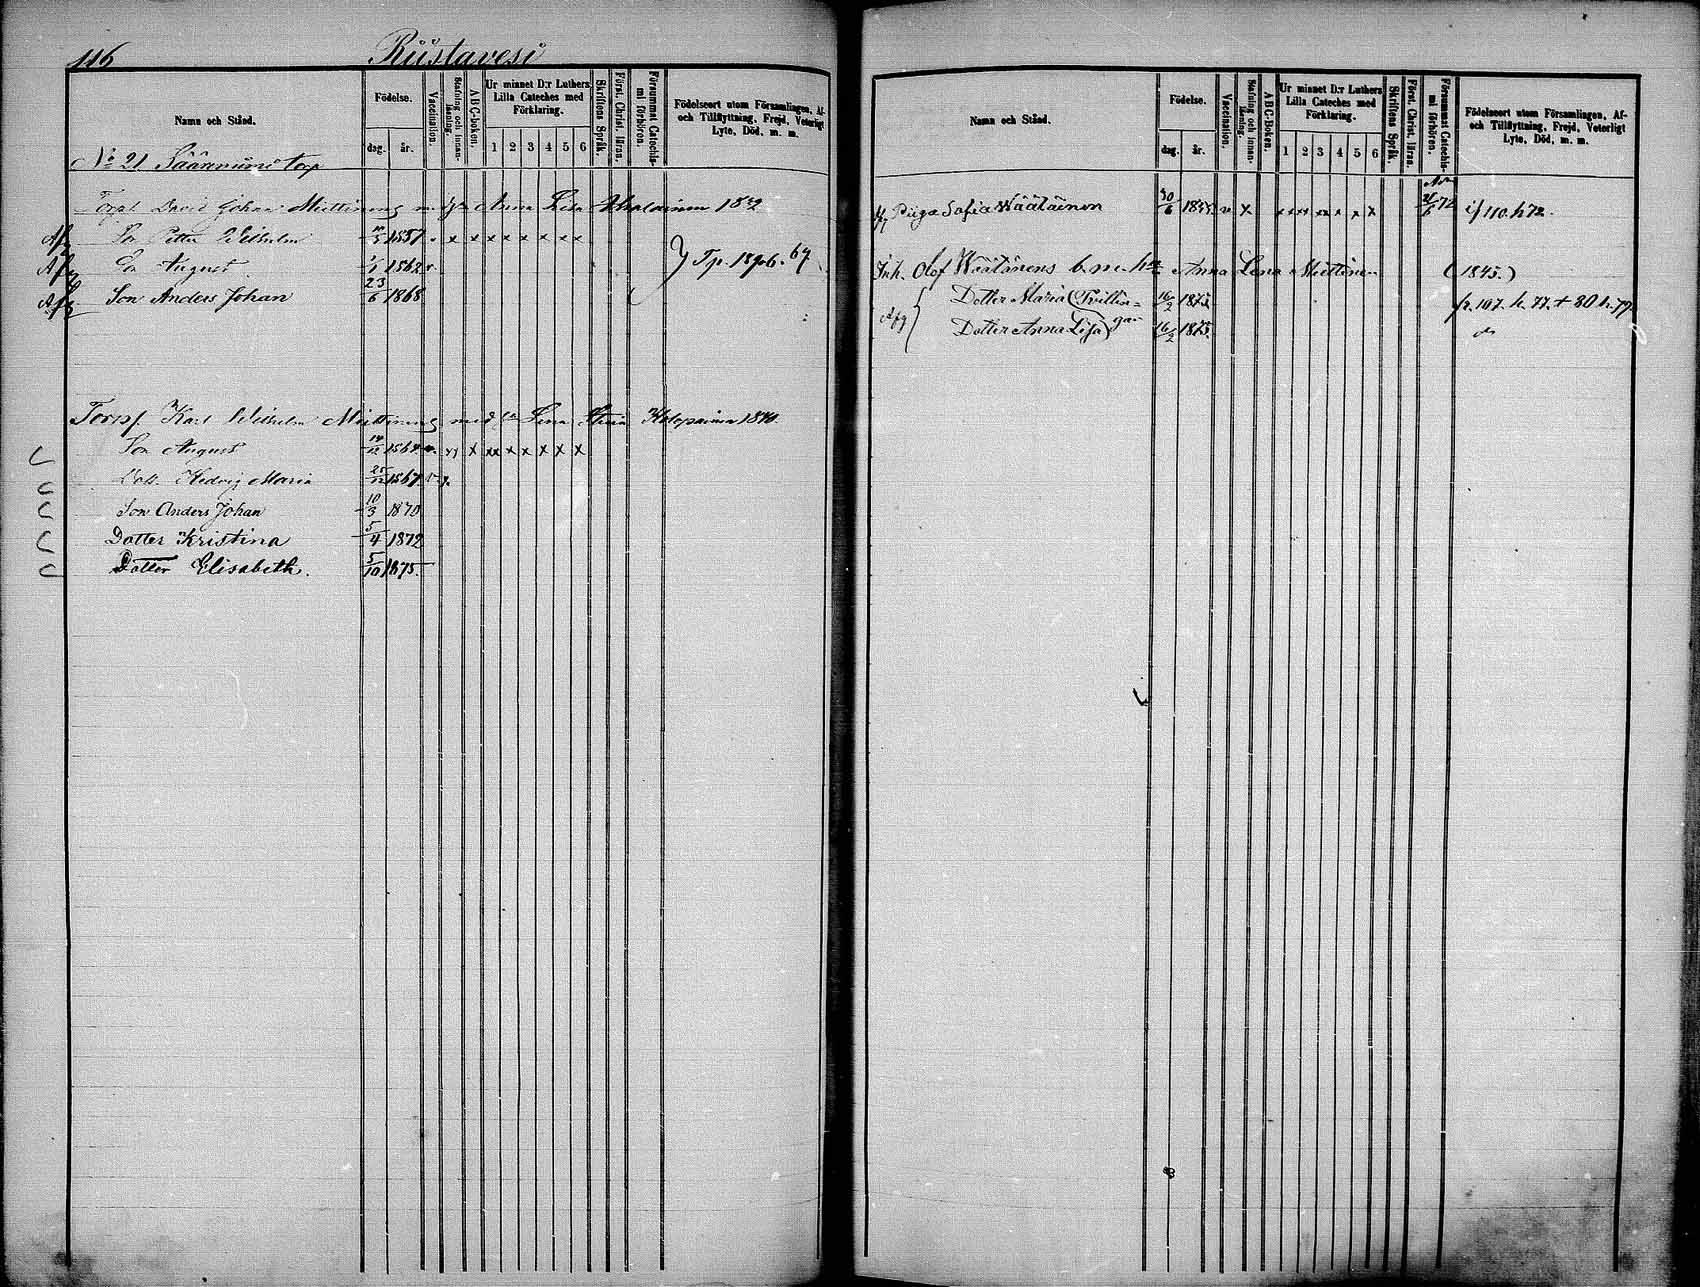 116 Riistavesi
Namn och Stånd.
Födelse.
dag. år.
Vaccination.
Stafning och innan-läsning.
ABC-boken.
Ur minnet D:r Luthers Lilla Cateches med Förklaring.
1 2 3 4 5 6
Skriftens Språk.
Först. Christ. läran.
Försummat Catechis-mi förhören.
Födelseort utom Församlingen, Af- och Tillflyttning, Frejd, Veterligt Lyte, Död, m. m.
No 21 Säärmiini torp
Torp. David Johan Miettinens m. h:u Anna Lisa
Afg Son Petter Wilhelm 1857 x x x x x x x x
Afg Son August 1/1 1862 v. } Tp. 67
Afg Son Anders Johan 23/6 1868
Torp. Karl Wilhelm Miettinens med Lena Stina Holopainen 1840.
Son August 14/12 1864 v. x x xx x x x x x
Dott. Hedvig Maria 25/12 1867 v
Son Anders Johan 10/3 1870
Dotter Kristina 5/4 1872
Dotter Elisabeth. 5/10 1875.
Namn och Stånd.
Födelse.
dag. år.
Vaccination.
Stafning och innan-läsning.
ABC-Boken.
Ur minnet D:r Luthers Lilla Cateches med Förklaring.
1 2 3 4 5 6
Skriftens Språk.
Först. Christ. läran.
Försummat Catechis-mi förhören.
Födelseort utom Församlingen, Af- och Tillflyttning, Frejd, Veterligt Lyte, Död, m. m.
Piga Sofia Wäätäinen 30/6 v x x x x x x x x 72 if 110. h 72.
Inh. Olof Wäätänens b. m. h:u Anna Lena Miettinen (1845.)
Afg { Dotter Maria (Tvillin- 16/2 1875 p. 107. h. 77. + 80 h. 79.
Dotter Anna Lisa) gar 16/2 1875.